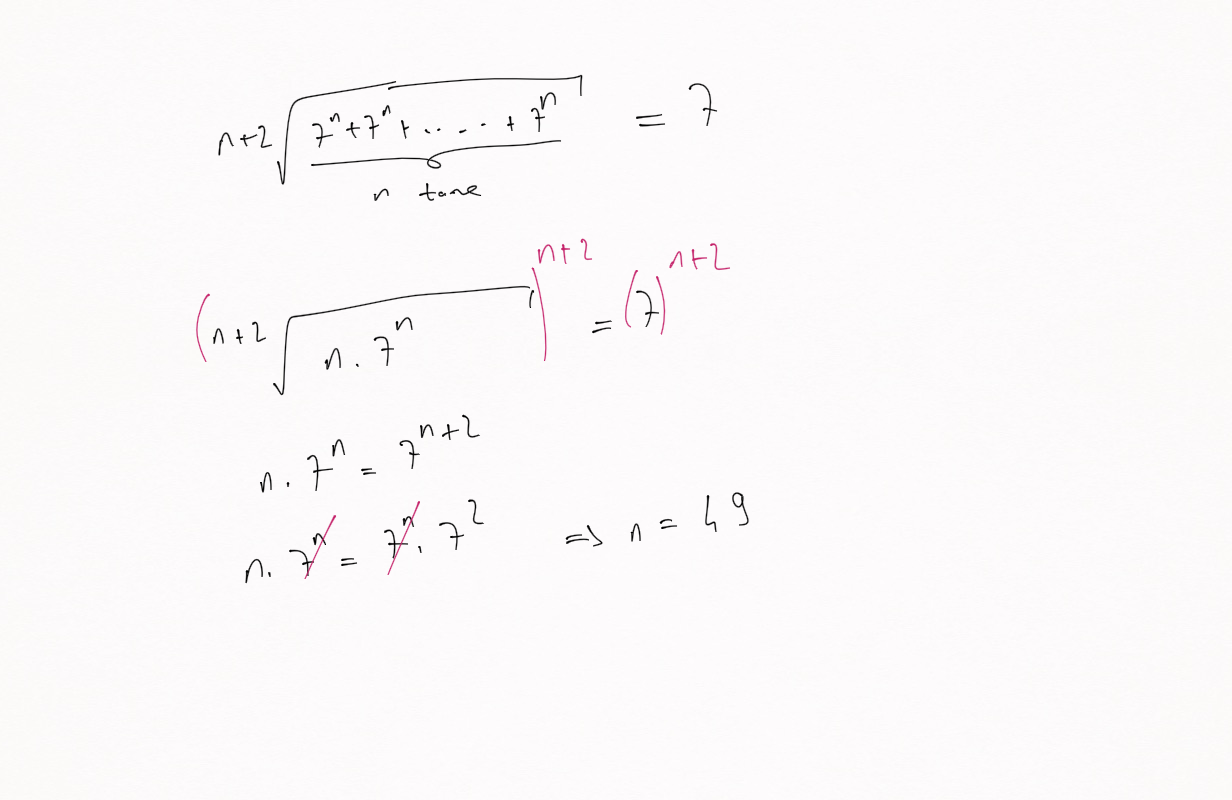 ⁿ⁺²√(7ⁿ+7ⁿ+.....+7ⁿ) = 7
n tane
(ⁿ⁺²√(n.7ⁿ))ⁿ⁺² = (7)ⁿ⁺²
n.7ⁿ = 7ⁿ⁺²
n.7ⁿ = 7ⁿ.7² => n = 49